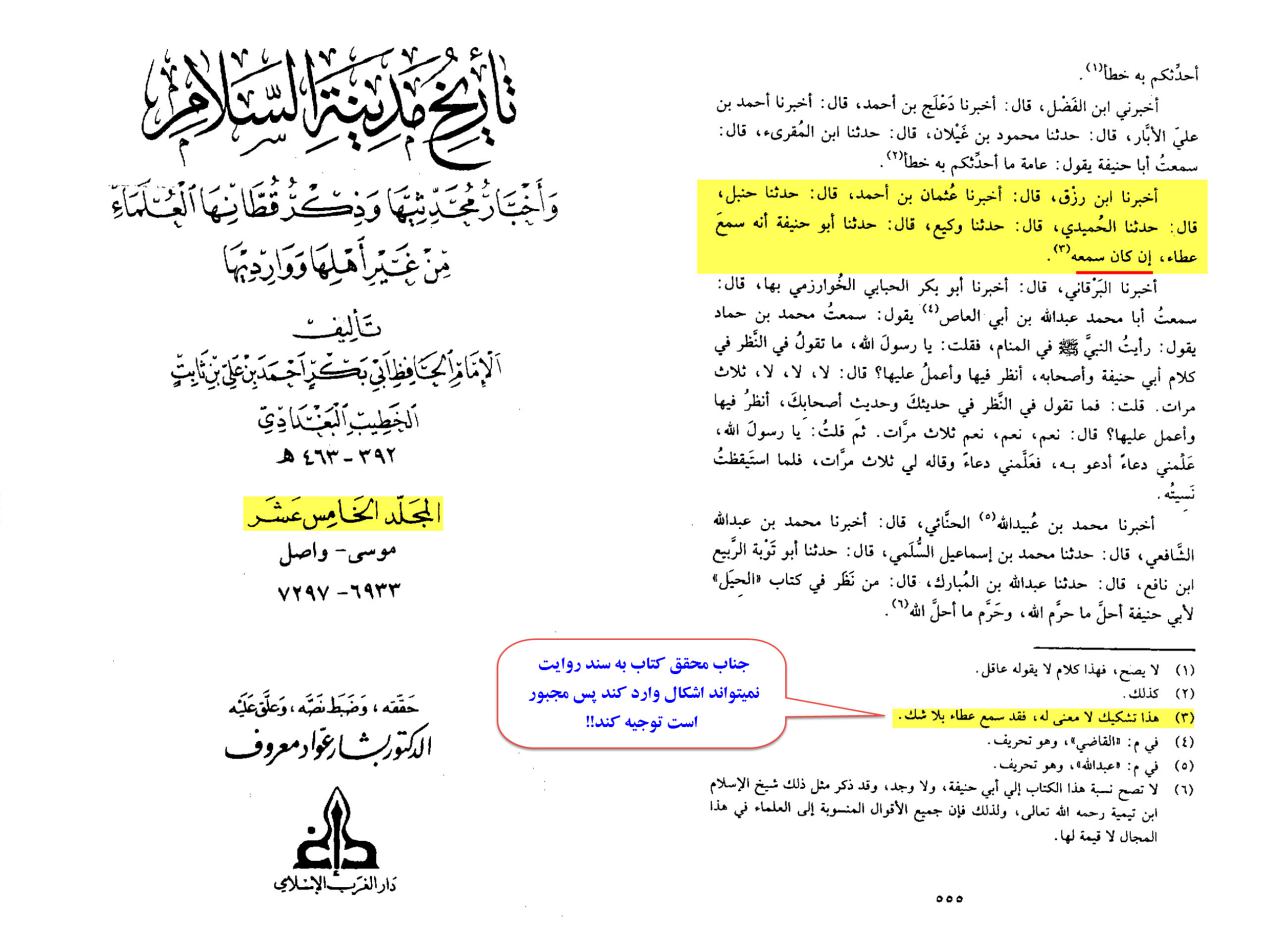 تأريخ مدينة السلام
وَأَخْبَارُ مُحَدِّثِيْهَا وَذِكْرُ قُطَّانِهَا الْعُلَمَاءِ
مِنْ غَيْرِ أَهْلِهَا وَوَارِدِيْهَا
تَأليف
الإمام الحافظ أبي بكر أحمد بن علي بن ثابت
الخطيب البغدادي
٣٩٢ - ٤٦٣ هـ
المجلد الخامس عشر
موسى - واصل
٦٩٣٣ - ٧٢٩٧
حققه، وضبط نصه، وعلق عليه
الدكتور بشار عواد معروف
دار الغرب الإسلامي
أحدِّثكم به خطأ(١).
أخبرني ابن الفَضْل، قال: أخبرنا دَعْلَج بن أحمد، قال: أخبرنا أحمد بن
عليّ الأبَّار، قال: حدثنا محمود بن غَيْلان، قال: حدثنا ابن المُقرىء، قال:
سمعتُ أبا حنيفة يقول: عامة ما أحدِّثكم به خطأ(٢).
أخبرنا ابن رزْق، قال: أخبرنا عُثمان بن أحمد، قال: حدثنا حنبل،
قال: حدثنا الحُميدي، قال: حدثنا وكيع، قال: حدثنا أبو حنيفة أنه سمعَ
عطاء، إن كان سمعه(٣).
أخبرنا البَرْقاني، قال: أخبرنا أبو بكر الحبابي الخُوارزمي بها، قال:
سمعتُ أبا محمد عبدالله بن أبي العاص(٤) يقول: سمعتُ محمد بن حماد
يقول: رأيتُ النبيَّ ﷺ في المنام، فقلت: يا رسولَ الله، ما تقولُ في النَّظر في
كلام أبي حنيفة وأصحابه، أنظر فيها وأعملُ عليها؟ قال: لا، لا، لا، ثلاث
مرات. قلت: فما تقول في النَّظر في حديثكَ وحديث أصحابِكَ، أنظرُ فيها
وأعمل عليها؟ قال: نعم، نعم، نعم ثلاث مرَّات. ثمَ قلتُ: يا رسولَ الله،
عَلّمني دعاءً أدعو به، فعَلَّمني دعاءً وقاله لي ثلاث مرَّات، فلما استَيقظتُ
نَسِيتُه.
أخبرنا محمد بن عُبيدالله(٥) الحنَّائي، قال: أخبرنا محمد بن عبدالله
الشَّافعي، قال: حدثنا محمد بن إسماعيل السُّلَمي، قال: حدثنا أبو تَوْبة الرَّبيع
ابن نافع، قال: حدثنا عبدالله بن المُبارك، قال: من نَظَر في كتاب «الحِيَل»
لأبي حنيفة أحلَّ ما حرَّم الله، وحَرَّم ما أحلَّ الله(٦).
(١) لا يصح، فهذا كلام لا يقوله عاقل.
(٢) كذلك.
(٣) هذا تشكيك لا معنى له، فقد سمع عطاء بلا شك.
(٤) في م: «القاضي»، وهو تحريف.
(٥) في م: «عبدالله»، وهو تحريف.
(٦) لا تصح نسبة هذا الكتاب إلى أبي حنيفة، ولا وجد، وقد ذكر مثل ذلك شيخ الإسلام
ابن تيمية رحمه الله تعالى، ولذلك فإن جميع الأقوال المنسوبة إلى العلماء في هذا
المجال لا قيمة لها.
٥٥٥
جناب محقق کتاب به سند روایت
نمیتواند اشکال وارد کند پس مجبور
است توجیه کند!!